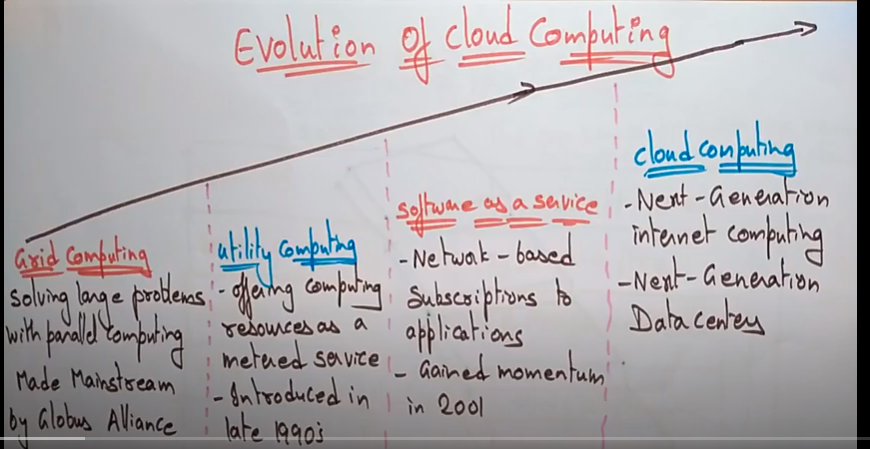 Evolution of Cloud Computing
Grid Computing
Solving large problems
with parallel computing
Made Mainstream
by Globus Alliance
utility computing
- offering computing
resources as a
metered service
- Introduced in
late 1990's
software as a service
- Network - based
Subscriptions to
applications
- Gained momentum
in 2001
cloud computing
- Next - Generation
internet computing
- Next - Generation
Data centers